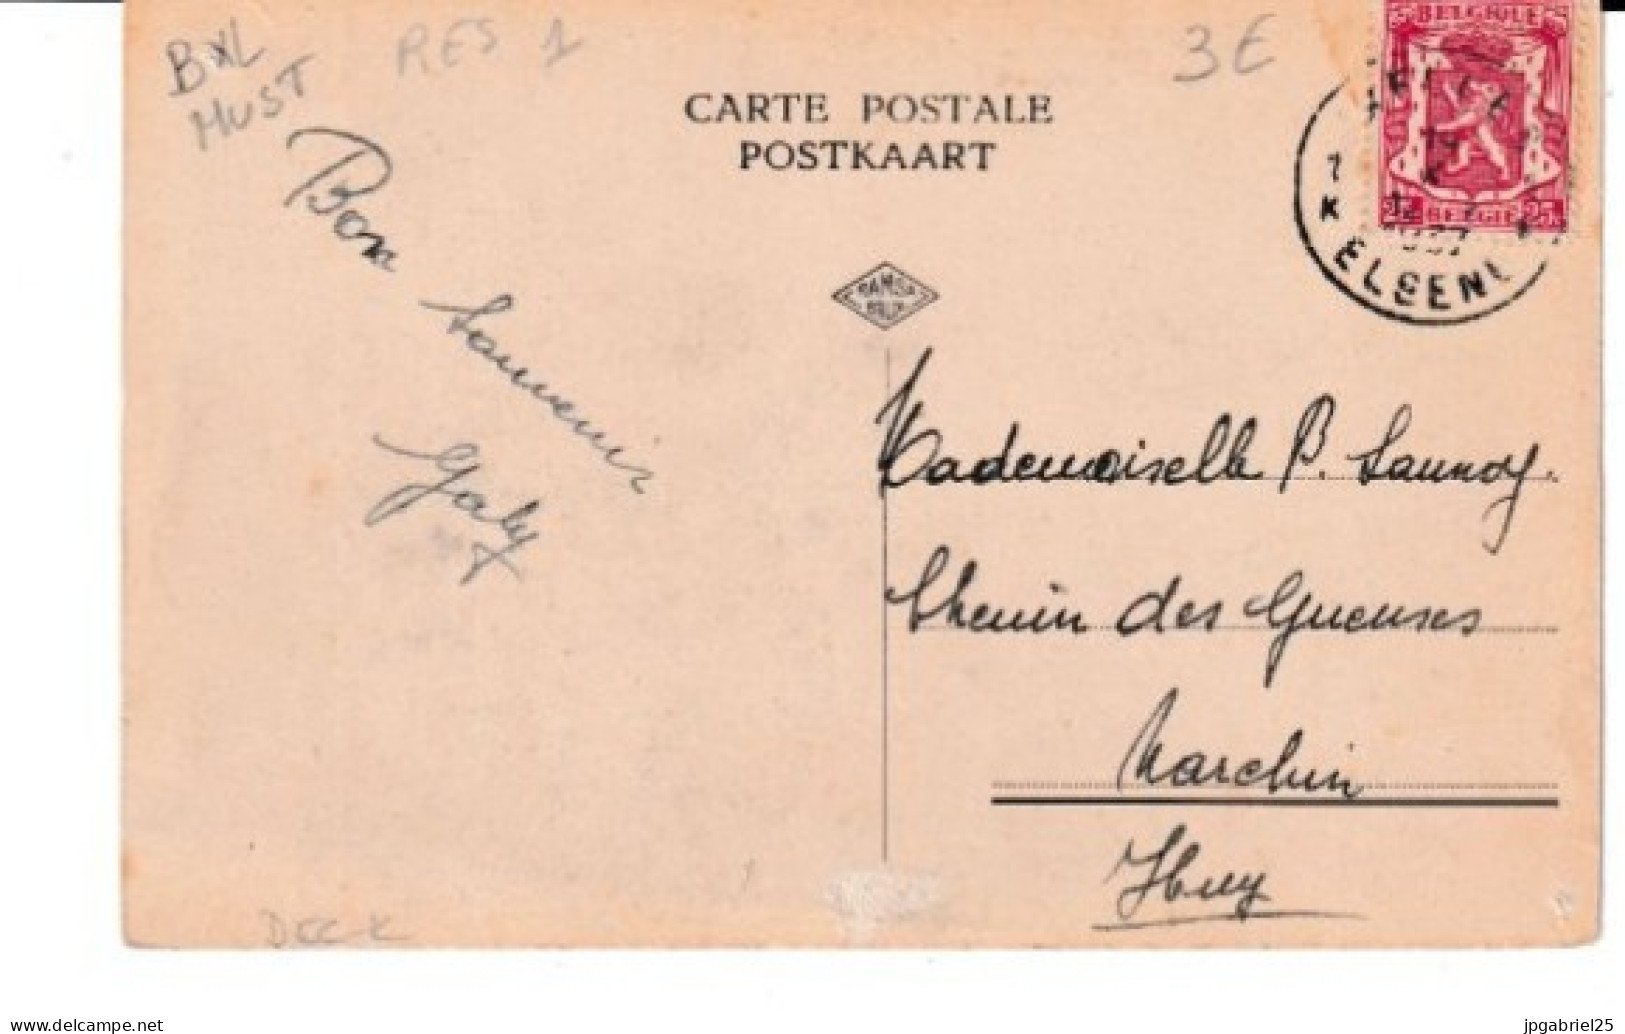 BXL
MUST
RES 1
3E
CARTE POSTALE
POSTKAART
BELGIQUE
BELGIË 25
1937
ELSENE
Bon
Souvenir
Gaby
Mademoiselle P. Launoy.
Chemin des Gueuses
Marchin
Huy
DECK
jpgabriel25
delcampe.net